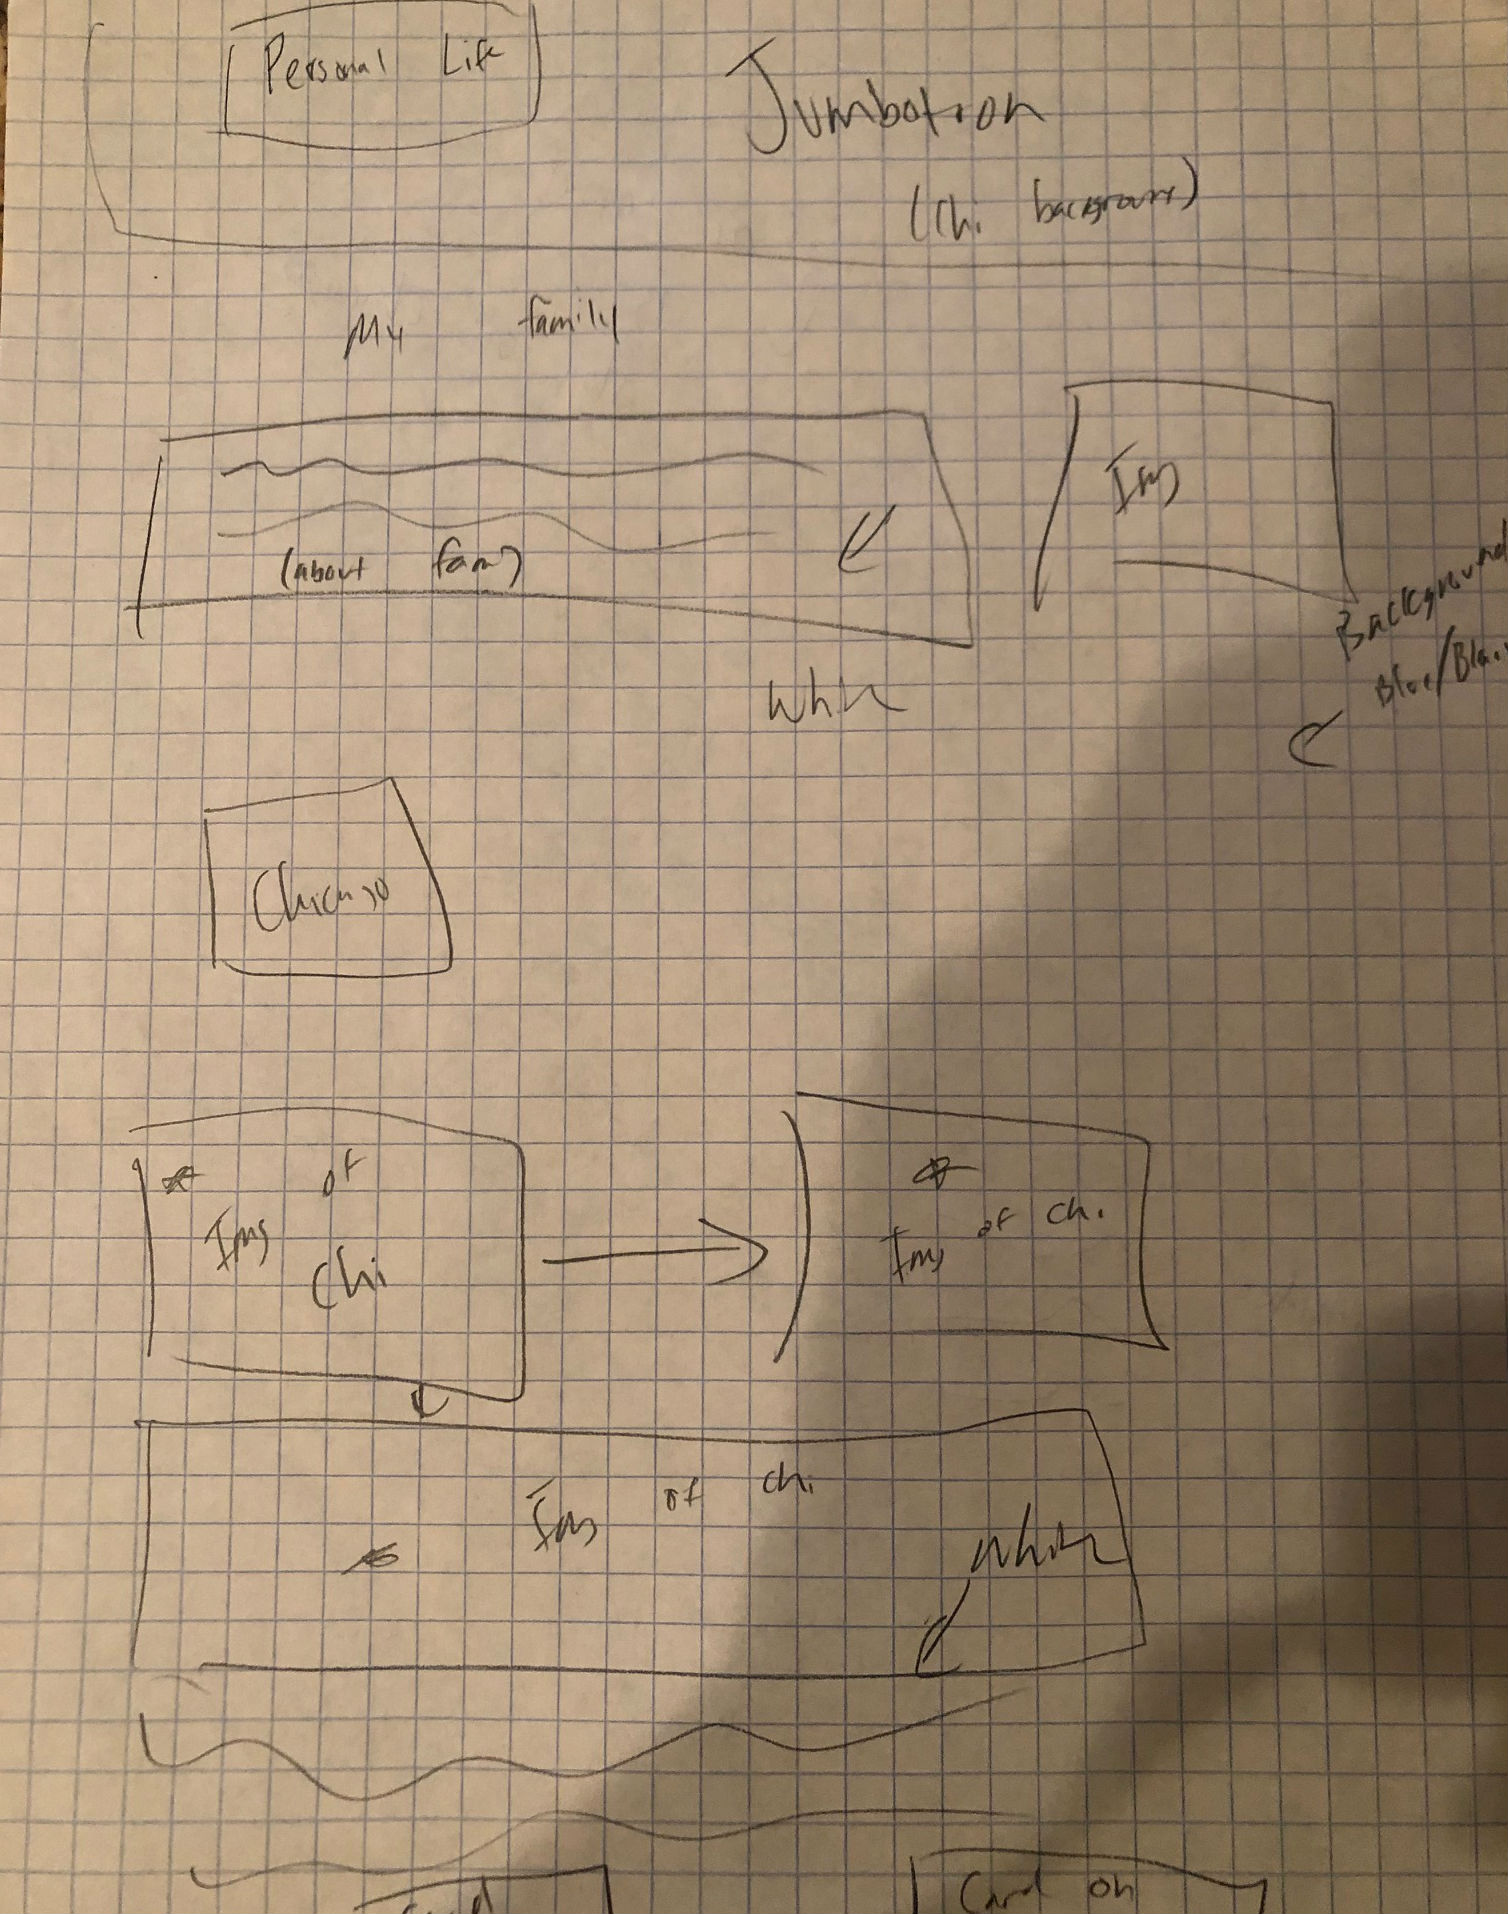 Personal Life
Jumbotron
(Chi background)
My family
Img
(about fam)
Background
White
Chicago
Img of Chi
Img of Chi
Img of Chi
White
Card on